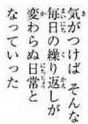 気がつけば そんな
毎日の繰り返しが
変わらぬ日常と
なっていった